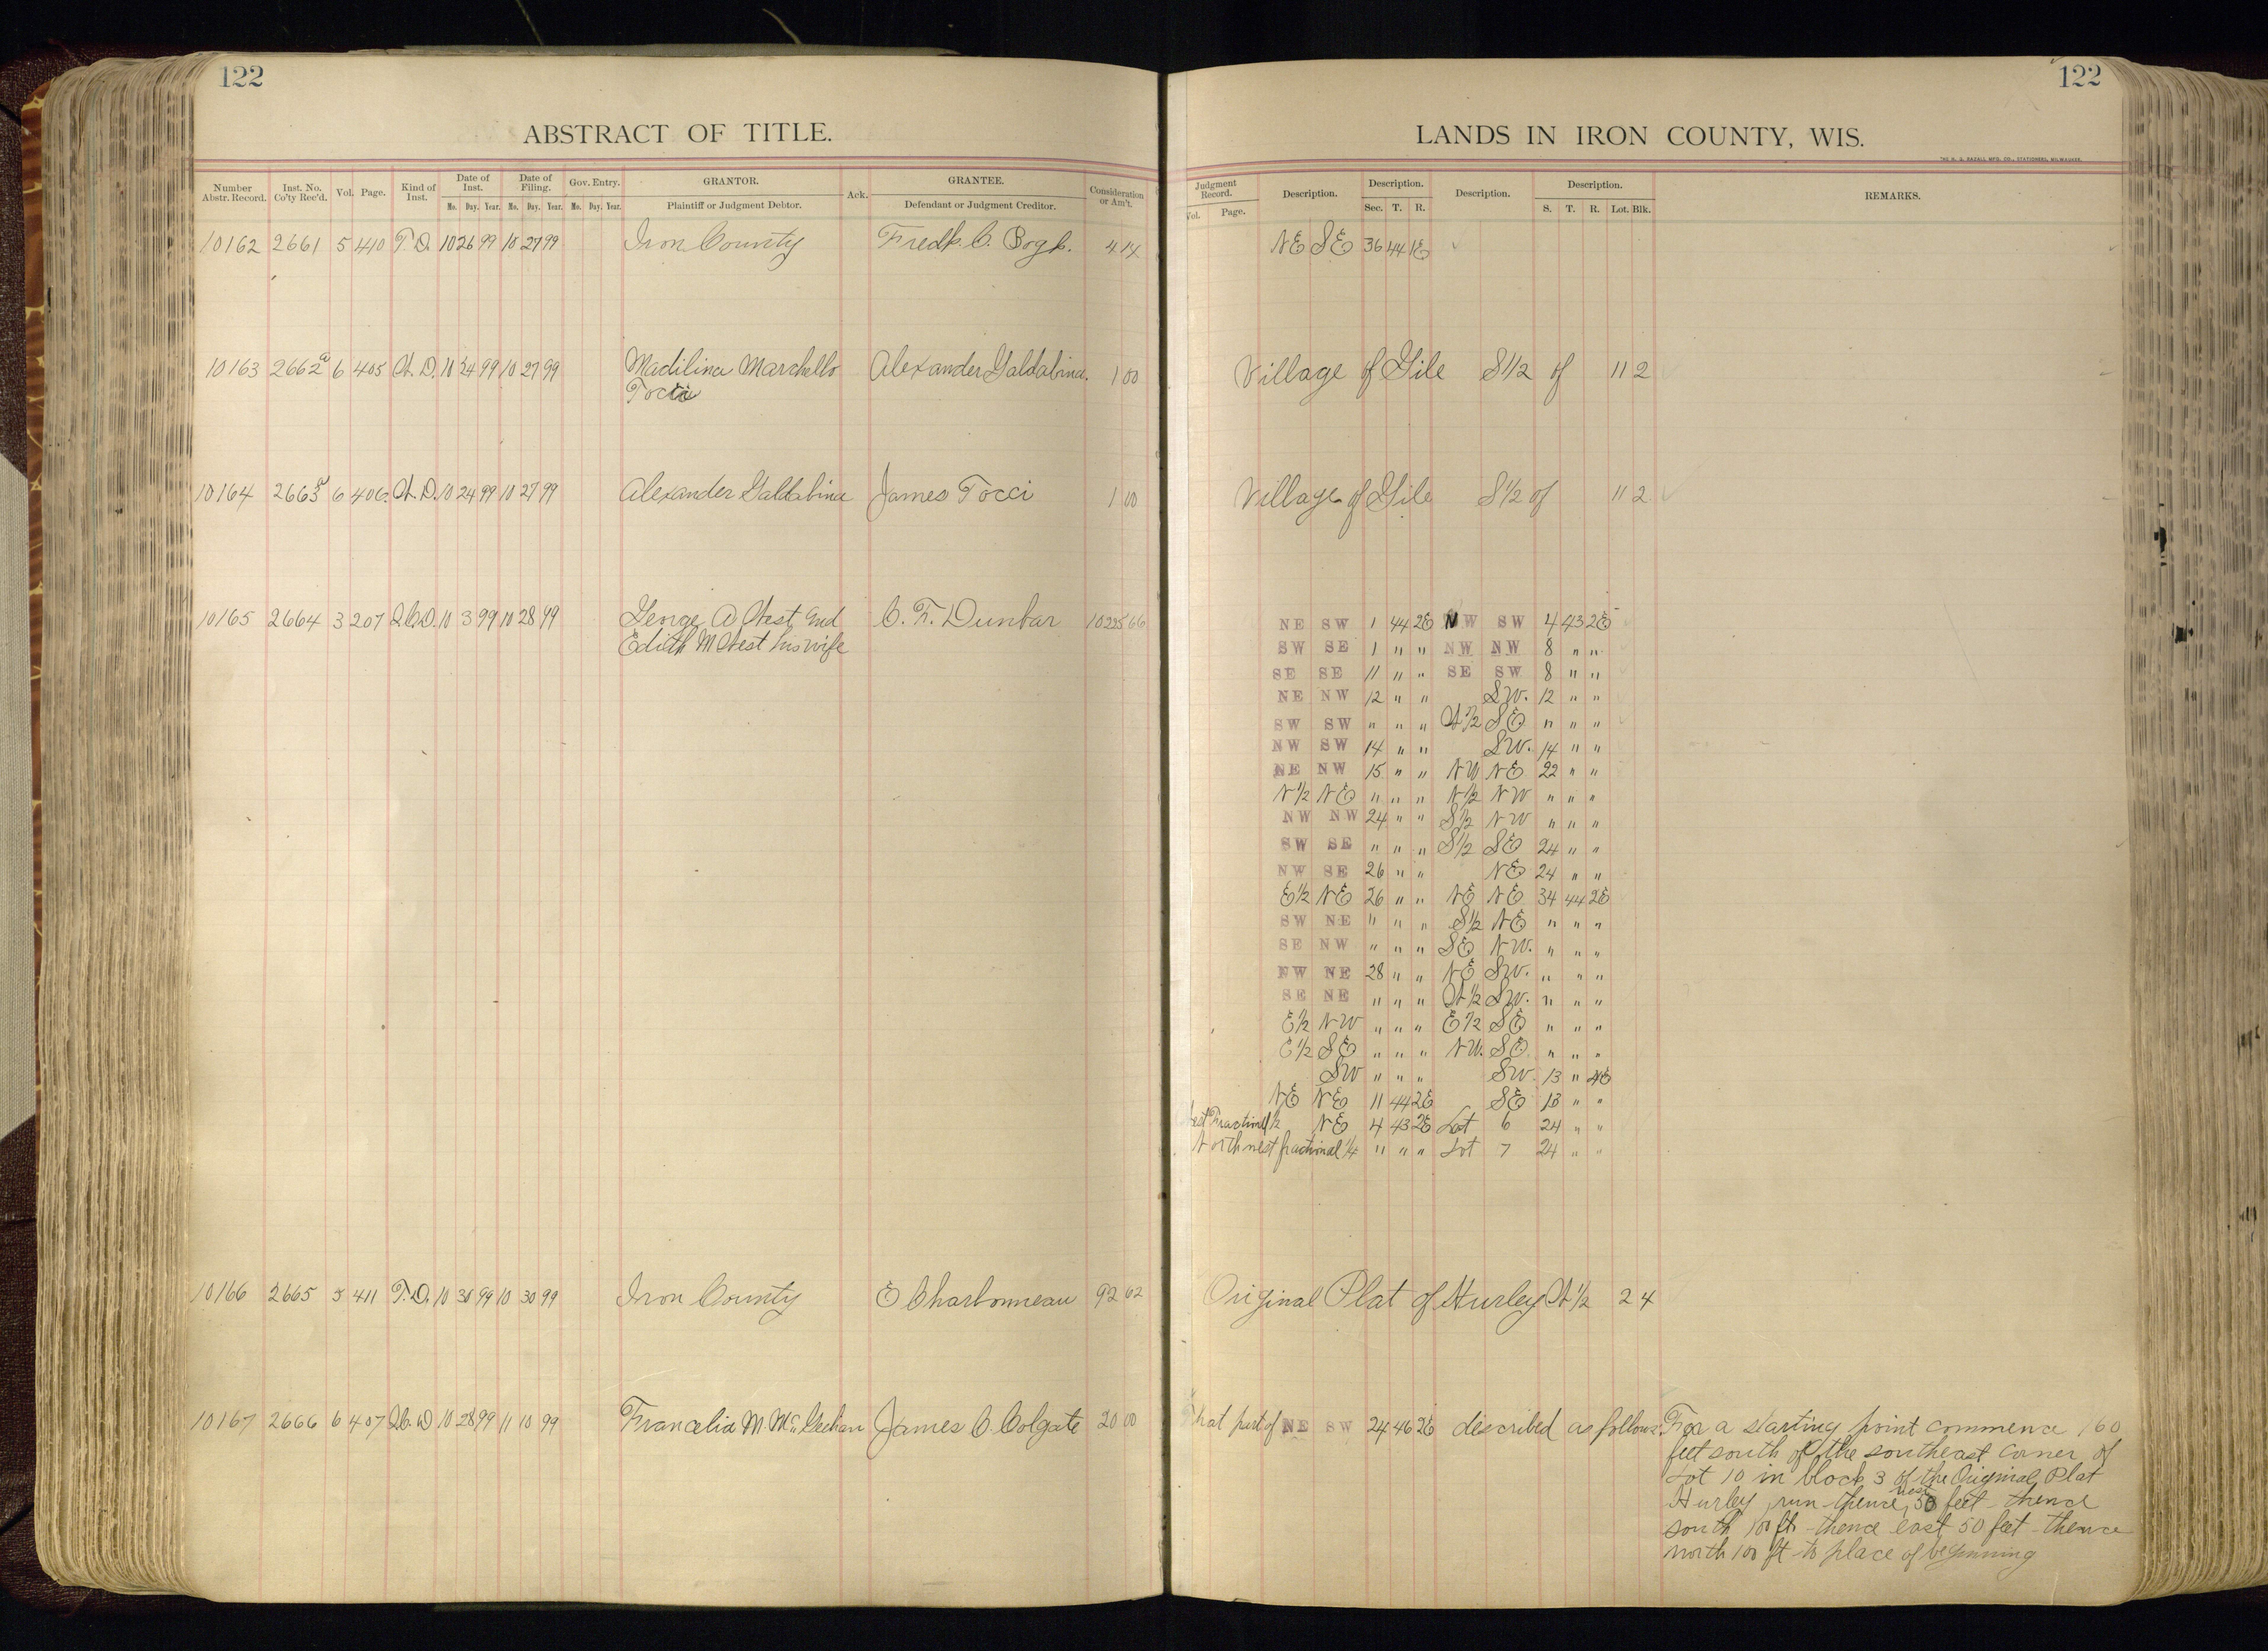 122
ABSTRACT OF TITLE.
Number Abstr. Record. Inst. No. Co'ty Rec'd. Vol. Page. Kind of Inst. Date of Inst. Mo. Day. Year. Date of Filing. Mo. Day. Year. Gov. Entry. Mo. Day. Year. GRANTOR. Plaintiff or Judgment Debtor. Ack. GRANTEE. Defendant or Judgment Creditor. Consideration or Am't.
10162 2661 5 410 T.D. 10 26 99 10 27 99 Iron County Fredk. C. Bogk. 4 14
10163 2662 a 6 405 W.D. 10 24 99 10 27 99 Madilina Marchello Alexander Galdabina. 1 00
Tocci
10164 2663 a 6 406. W.D. 10 24 99 10 27 99 Alexander Galdabina James Tocci 1 00
10165 2664 3 207 2.C.D. 10 3 99 10 28 99 George A West and C. F. Dunbar 10225 66
Edith M West his wife
10166 2665 5 411 T.D. 10 30 99 10 30 99 Iron County E Charbonneau 92 62
10167 2666 6 407 2.C.D 10 28 99 11 10 99 Francelia M. Mc Geehan James C. Colgate 20 00
122
LANDS IN IRON COUNTY, WIS.
THE H. G. RAZALL MFG. CO., STATIONERS, MILWAUKEE.
Judgment Record. Vol. Page. Description. Description. Sec. T. R. Description. Description. S. T. R. Lot. Blk. REMARKS.
NE SE 36 44 1E
Village of Gile S 1/2 of 11 2
Village of Gile S 1/2 of 11 2
NE SW 1 44 2E NW SW 4 43 2E
SW SE 1 " " NW NW 8 " "
SE SE 11 " " SE SW 8 " "
NE NW 12 " " SW. 12 " "
SW SW " " " W 1/2 SE " " "
NW SW 14 " " SW. 14 " "
NE NW 15 " " NW NE 22 " "
N 1/2 NE " " " N 1/2 NW " " "
NW NW 24 " " S 1/2 NW " " "
SW SE " " " S 1/2 SE 24 " "
NW SE 26 " " NE 24 " "
E 1/2 NE 26 " " NE NE 34 44 2E
SW NE " " " S 1/2 NE " " "
SE NW " " " SE NW. " " "
NE 28 " " NE SW. " " "
SE NE " " " W 1/2 SW. " " "
E 1/2 NW " " " E 1/2 SE " " "
E 1/2 SE " " " NW. SE " " "
SW " " " SW. 13 " 4E
NE NE 11 44 2E SE 13 " "
West Fractional 1/2 NE 4 43 2E Lot 6 24 " "
Northwest fractional 1/4 " " " Lot 7 24 " "
Original Plat of Hurley W 1/2 2 4
That part of NE SW 24 46 2E described as follows. For a starting point commence 160
feet south of the southeast corner of
Lot 10 in block 3 of the Original Plat
Hurley, run thence west 50 feet - thence
south 100 ft - thence east 50 feet - thence
north 100 ft to place of beginning